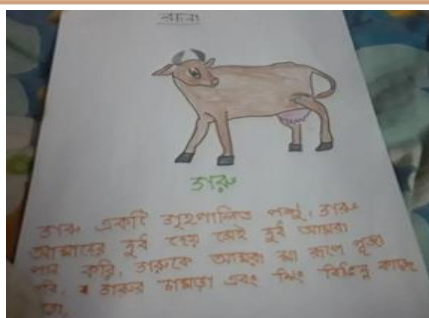 গরু
গরু একটি গৃহপালিত পশু, গরু
আমাদের দুধ দেয় সেই দুধ আমরা
পান করি, গরুকে আমরা মা রূপে পূজা
করি, গরুর চামড়া এবং শিং বিভিন্ন কাজে